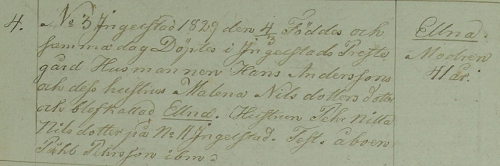 4.
No 3 Ingelstad 1829 den 4/3 Föddes och
samma dag Döptes i Ingelstads Preste
gård Husmannen Hans Anderssons
och dess hustrus Malena Nils dotters dotter
och blef kallad Ellna. Hustrun Nilla
Nils dotter på No 11 Ingelstad. Test. åboen
Påhl Pehrsson ibm:
Ellna.
Modren
41 år.